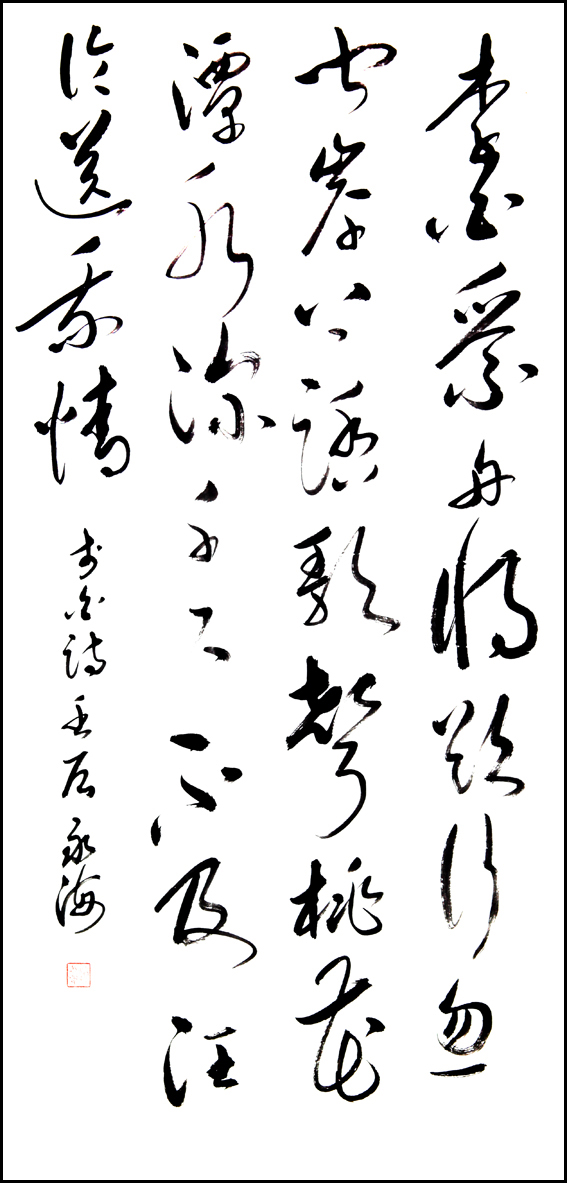 李白乘舟將欲行忽
聞岸上踏歌聲桃花
潭水深千尺不及汪
倫送我情
李白詩壬辰永海